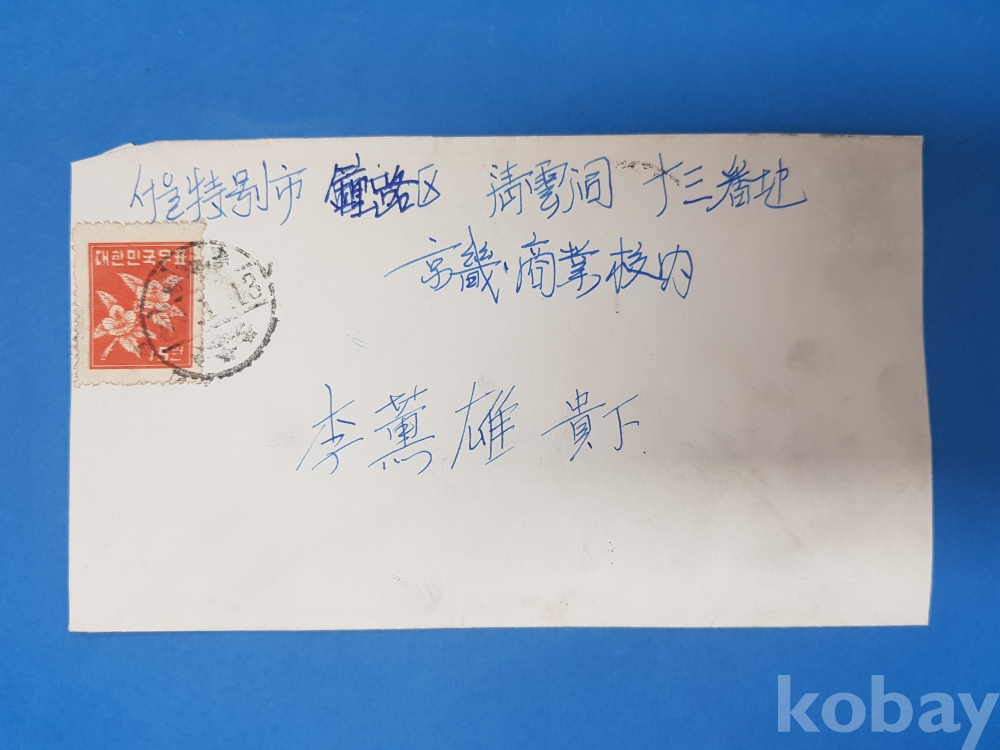 서울特别市 鐘路区 淸雲洞 十三番地
京畿商業校内
李薰雄 貴下
대한민국우표
15원
13
kobay